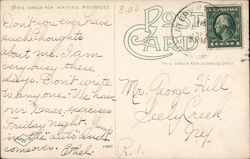 THIS SPACE FOR WRITING MESSAGES
Don't you ever have
such thoughts
about me. I am
very busy these
days. Don't write
to any one. We have
our exercises
Friday night.
in the
someone. Ethel.
3.00
POST
CARD
THIS SPACE FOR ADDRESS ONLY
Mr. George Hill
Seely Creek,
N.Y.
R. 1.